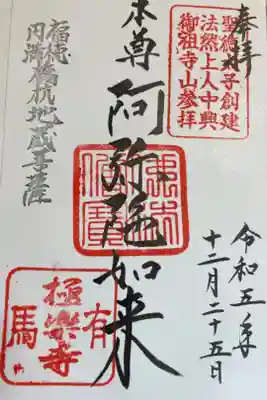 奉拝
聖徳太子創建
法然上人中興
御祖寺山参拝
本尊
阿弥陀如来
福徳
円満
橋杭地蔵菩薩
令和五年
十二月二十五日
有
極楽寺
馬